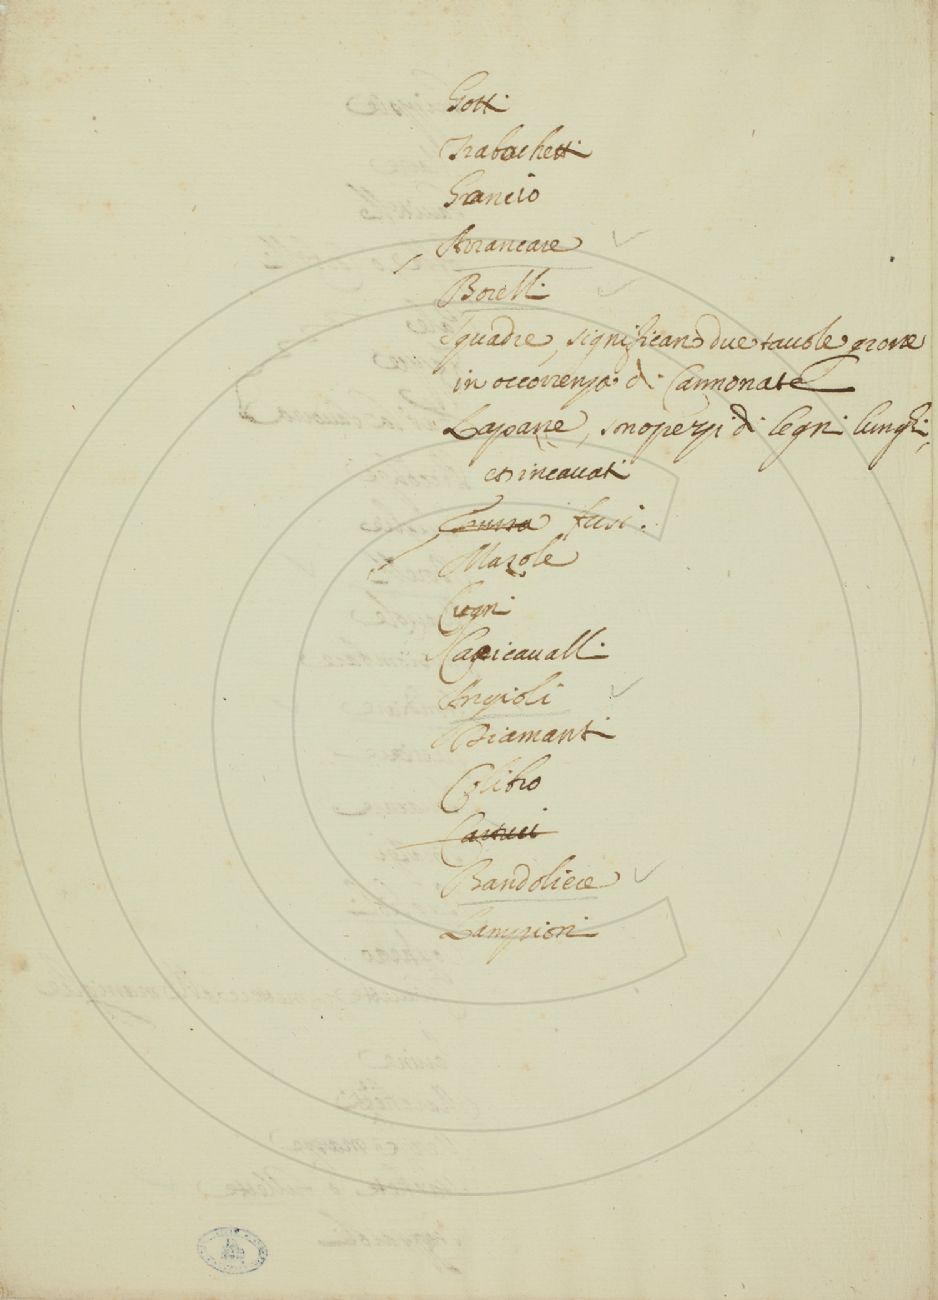 Gotti
Trabochetti
Grancio
Avrancare
Borelli
squadre, significan due tavole grosse
in occorrenza di Cannonate
Lapazze, sno pezzi di legni lunghi,
et incavati
fusi.
Mazole
Cugni
Capicavalli
Angioli
Diamanti
Colibro
Bandoliere
Lampioni